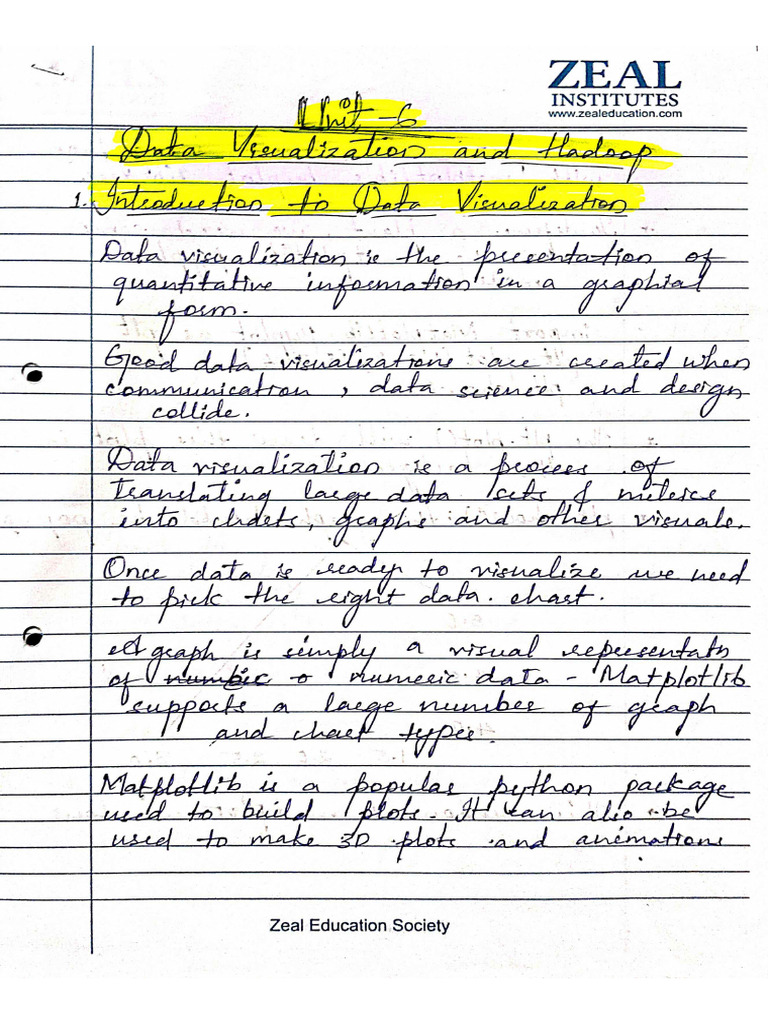 ZEAL
INSTITUTES
www.zealeducation.com
Unit-6
Data Visualization and Hadoop
1. Introduction to Data Visualization
Data visualization is the presentation of
quantitative information in a graphial
form.
Good data visualizations are created when
communication, data science and design
collide.
Data visualization is a process of
translating large data sets & meterics
into charts, graphs and other visuals.
Once data is ready to visualize we need
to pick the right data. chart.
A graph is simply a visual representatn
of numeric data - Matplotlib
supports a large number of graph
and chart types.
Matplotlib is a popular python package
used to build plots. It can also be
used to make 3D plots and animations
Zeal Education Society